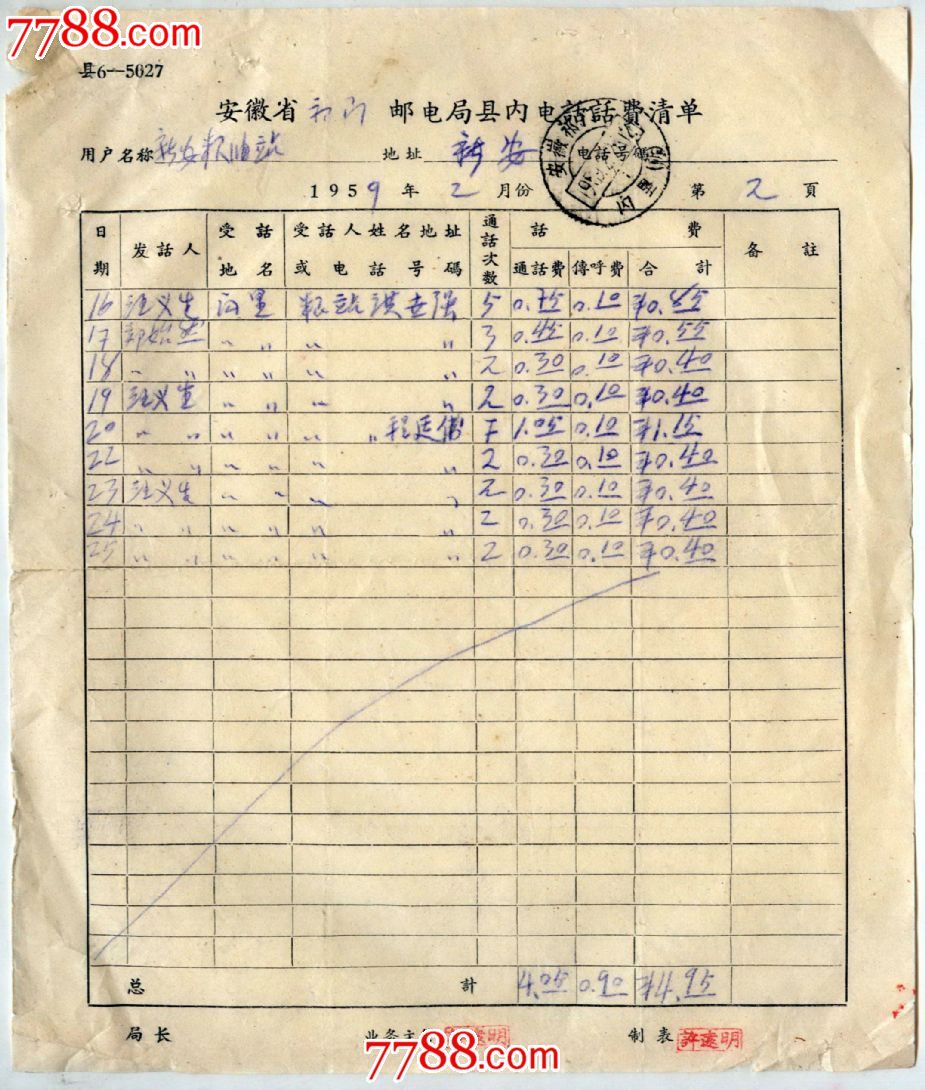 7788.com
县6—5627
安徽省祁门邮电局县内电話話費清单
用户名称 新安粮油站 地址 新安 电話号碼
1959年2月份 第2頁
日期 发話人 受話地名 受話人姓名地址或电話号碼 通話次数 話費 备註
通話費 傳呼費 合計
16 汪义生 粮站洪 5 0.75 0.10 ¥0.85
17 〃 〃 〃 〃 3 0.45 0.10 ¥0.55
18 〃 〃 〃 〃 〃 〃 2 0.30 0.10 ¥0.40
19 汪义生 〃 〃 〃 〃 2 0.30 0.10 ¥0.40
20 〃 〃 〃 〃 〃 〃 程廷 7 1.05 0.10 ¥1.15
22 〃 〃 〃 〃 〃 〃 2 0.30 0.10 ¥0.40
23 汪义生 〃 〃 〃 〃 2 0.30 0.10 ¥0.40
24 〃 〃 〃 〃 〃 〃 2 0.30 0.10 ¥0.40
25 〃 〃 〃 〃 〃 〃 2 0.30 0.10 ¥0.40
总計 4.05 0.90 ¥4.95
局长 业务主 制表 許遠明
7788.com